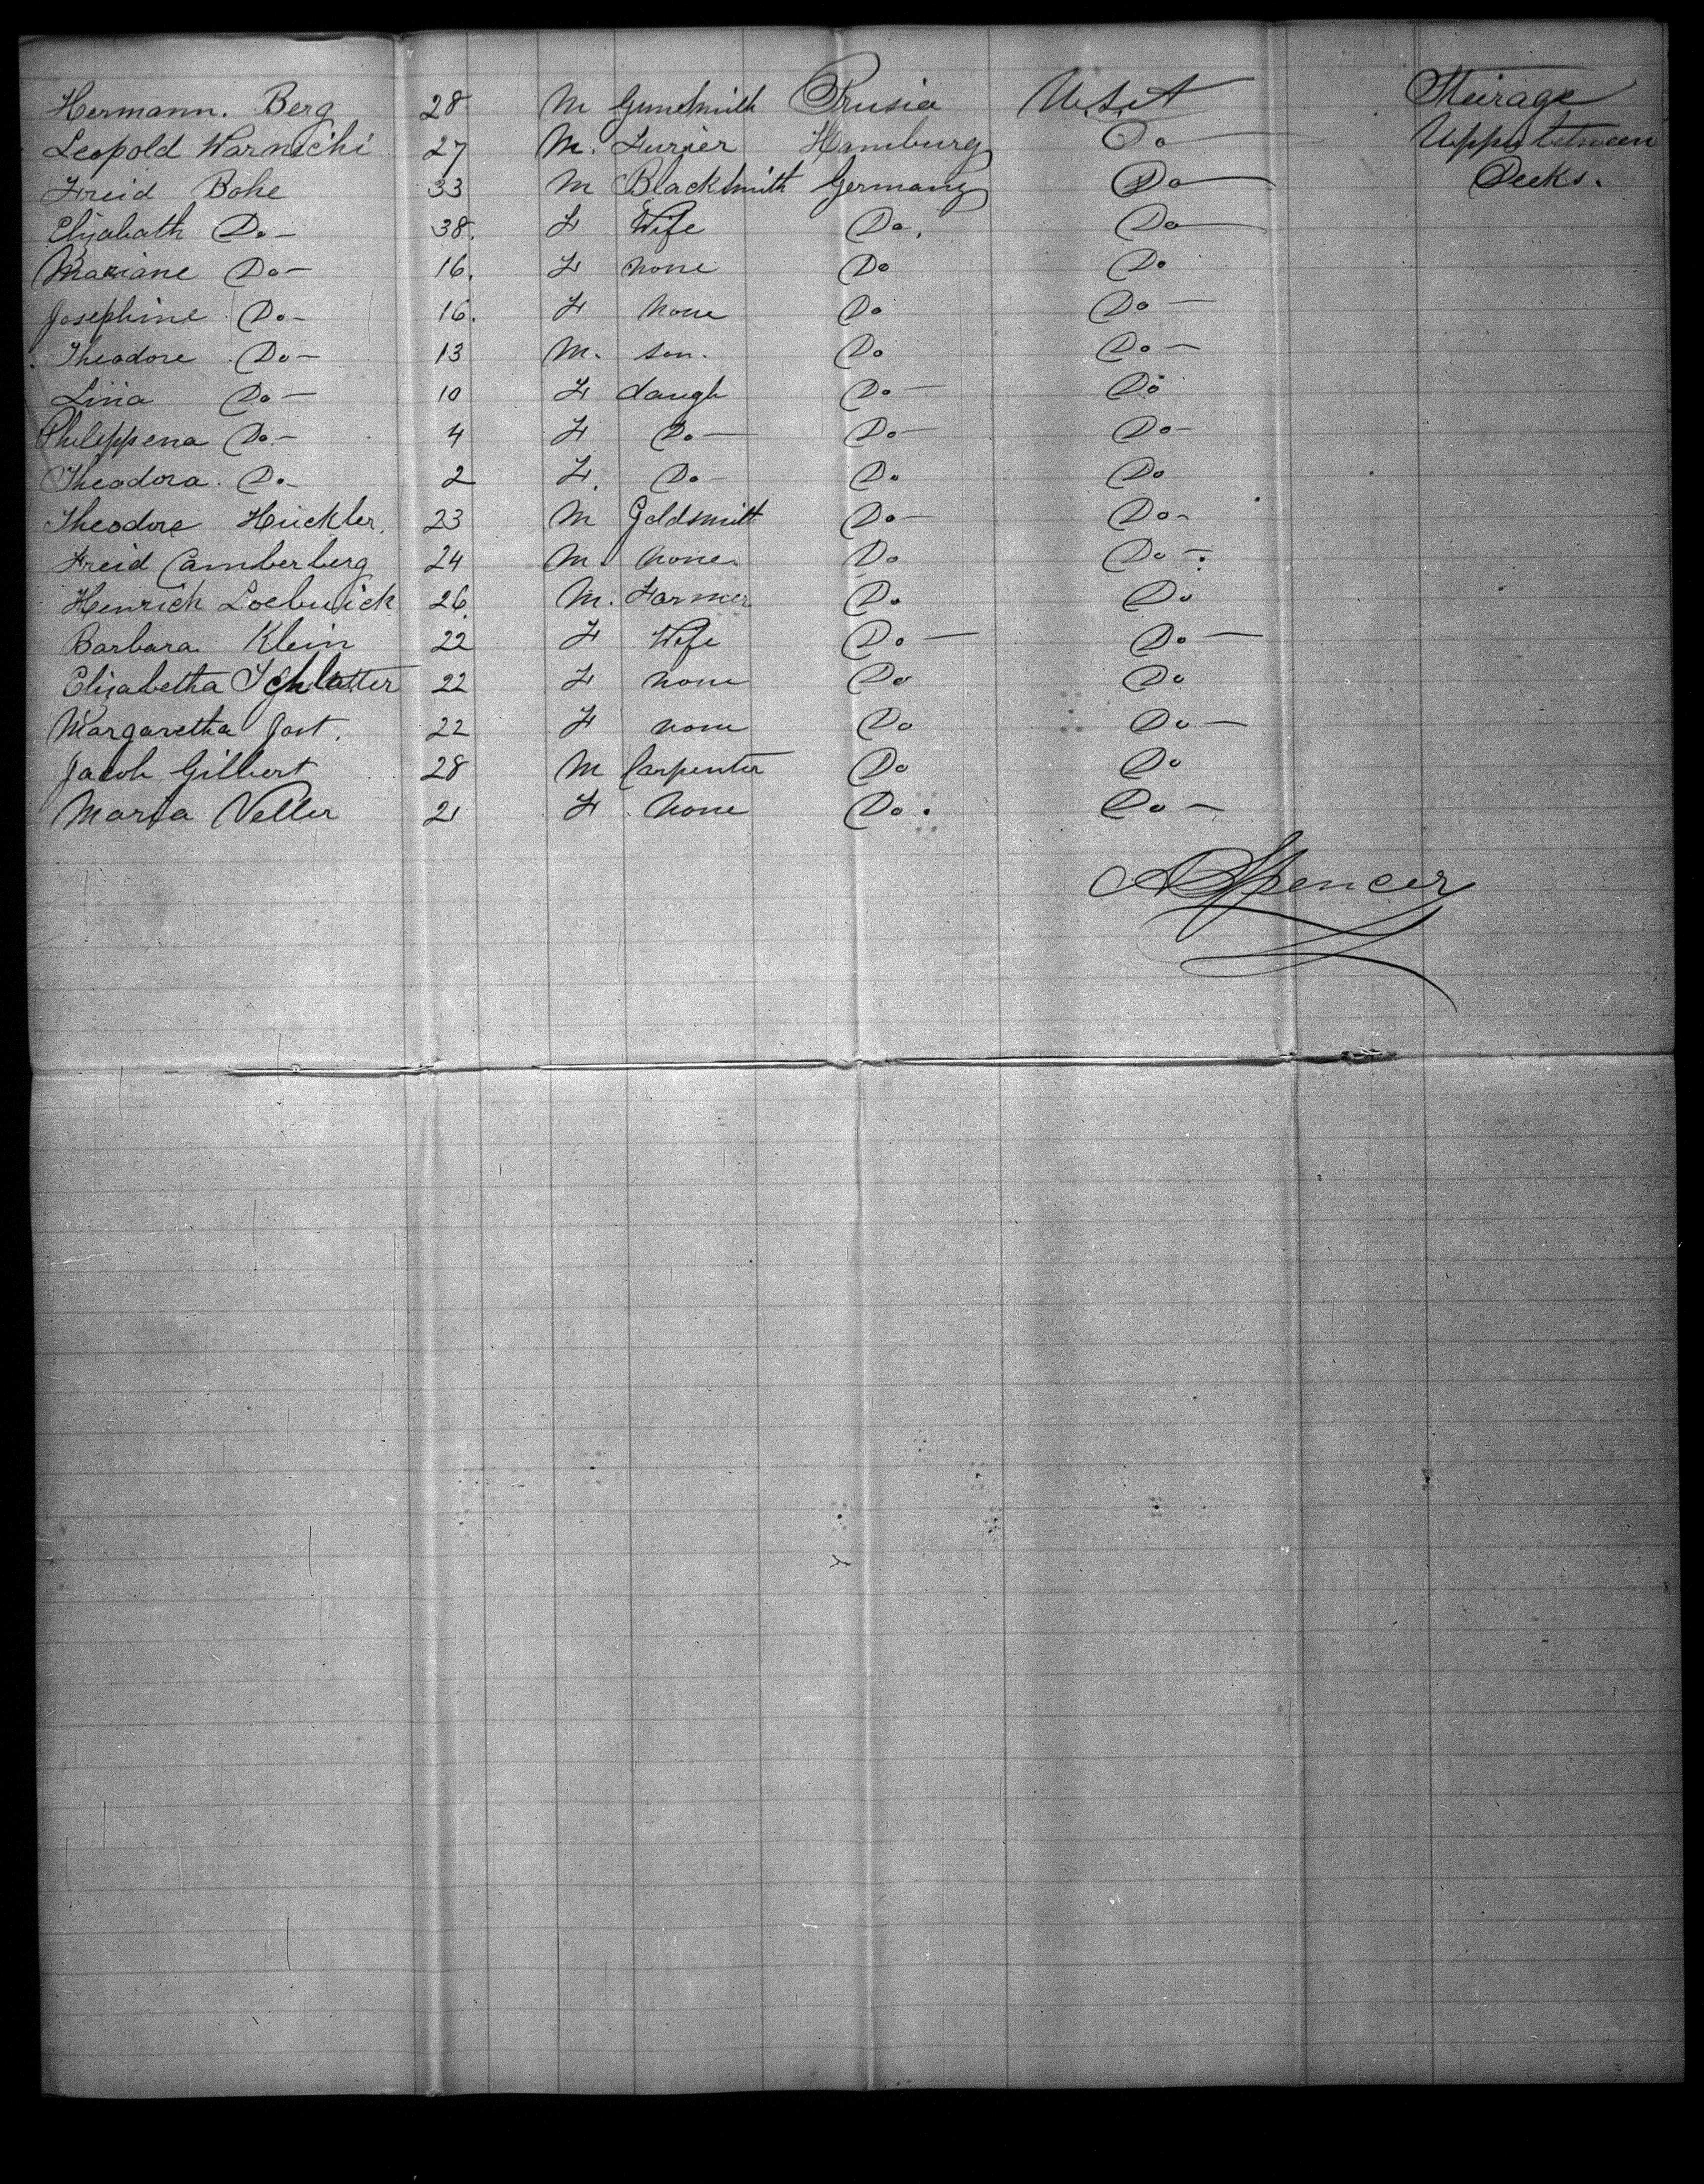 Hermann. Berg 28 M Gunsmith Prusia U.S.A Steirage
Leopold Warnichi 27 M. Furier Hamburg Do Upper between
Freid Bohe 33 M Blacksmith Germany Do Decks.
Elizabath Do 38. F Wife Do. Do
Mariane Do 16. F none Do Do
Josephine Do 16. F none Do Do
Theodore Do 13 M. son. Do Do
Lina Do 10 F daugh Do Do
Phileppena Do 4 F Do Do Do
Theodora. Do 2 F. Do Do Do
Theodore Huckler. 23 M Goldsmith Do Do
Freid Camberberg 24 M. none. Do Do
Henrich 26 M. Farmer Do Do
Barbara Klein 22 F Wife Do Do
Elizabetha Schlatter 22 F none Do Do
Margaretha Jost. 22 F none Do Do
Jacob Gilbert 28 M Carpenter Do Do
Maria Veller 21 F none Do. Do
A Spencer